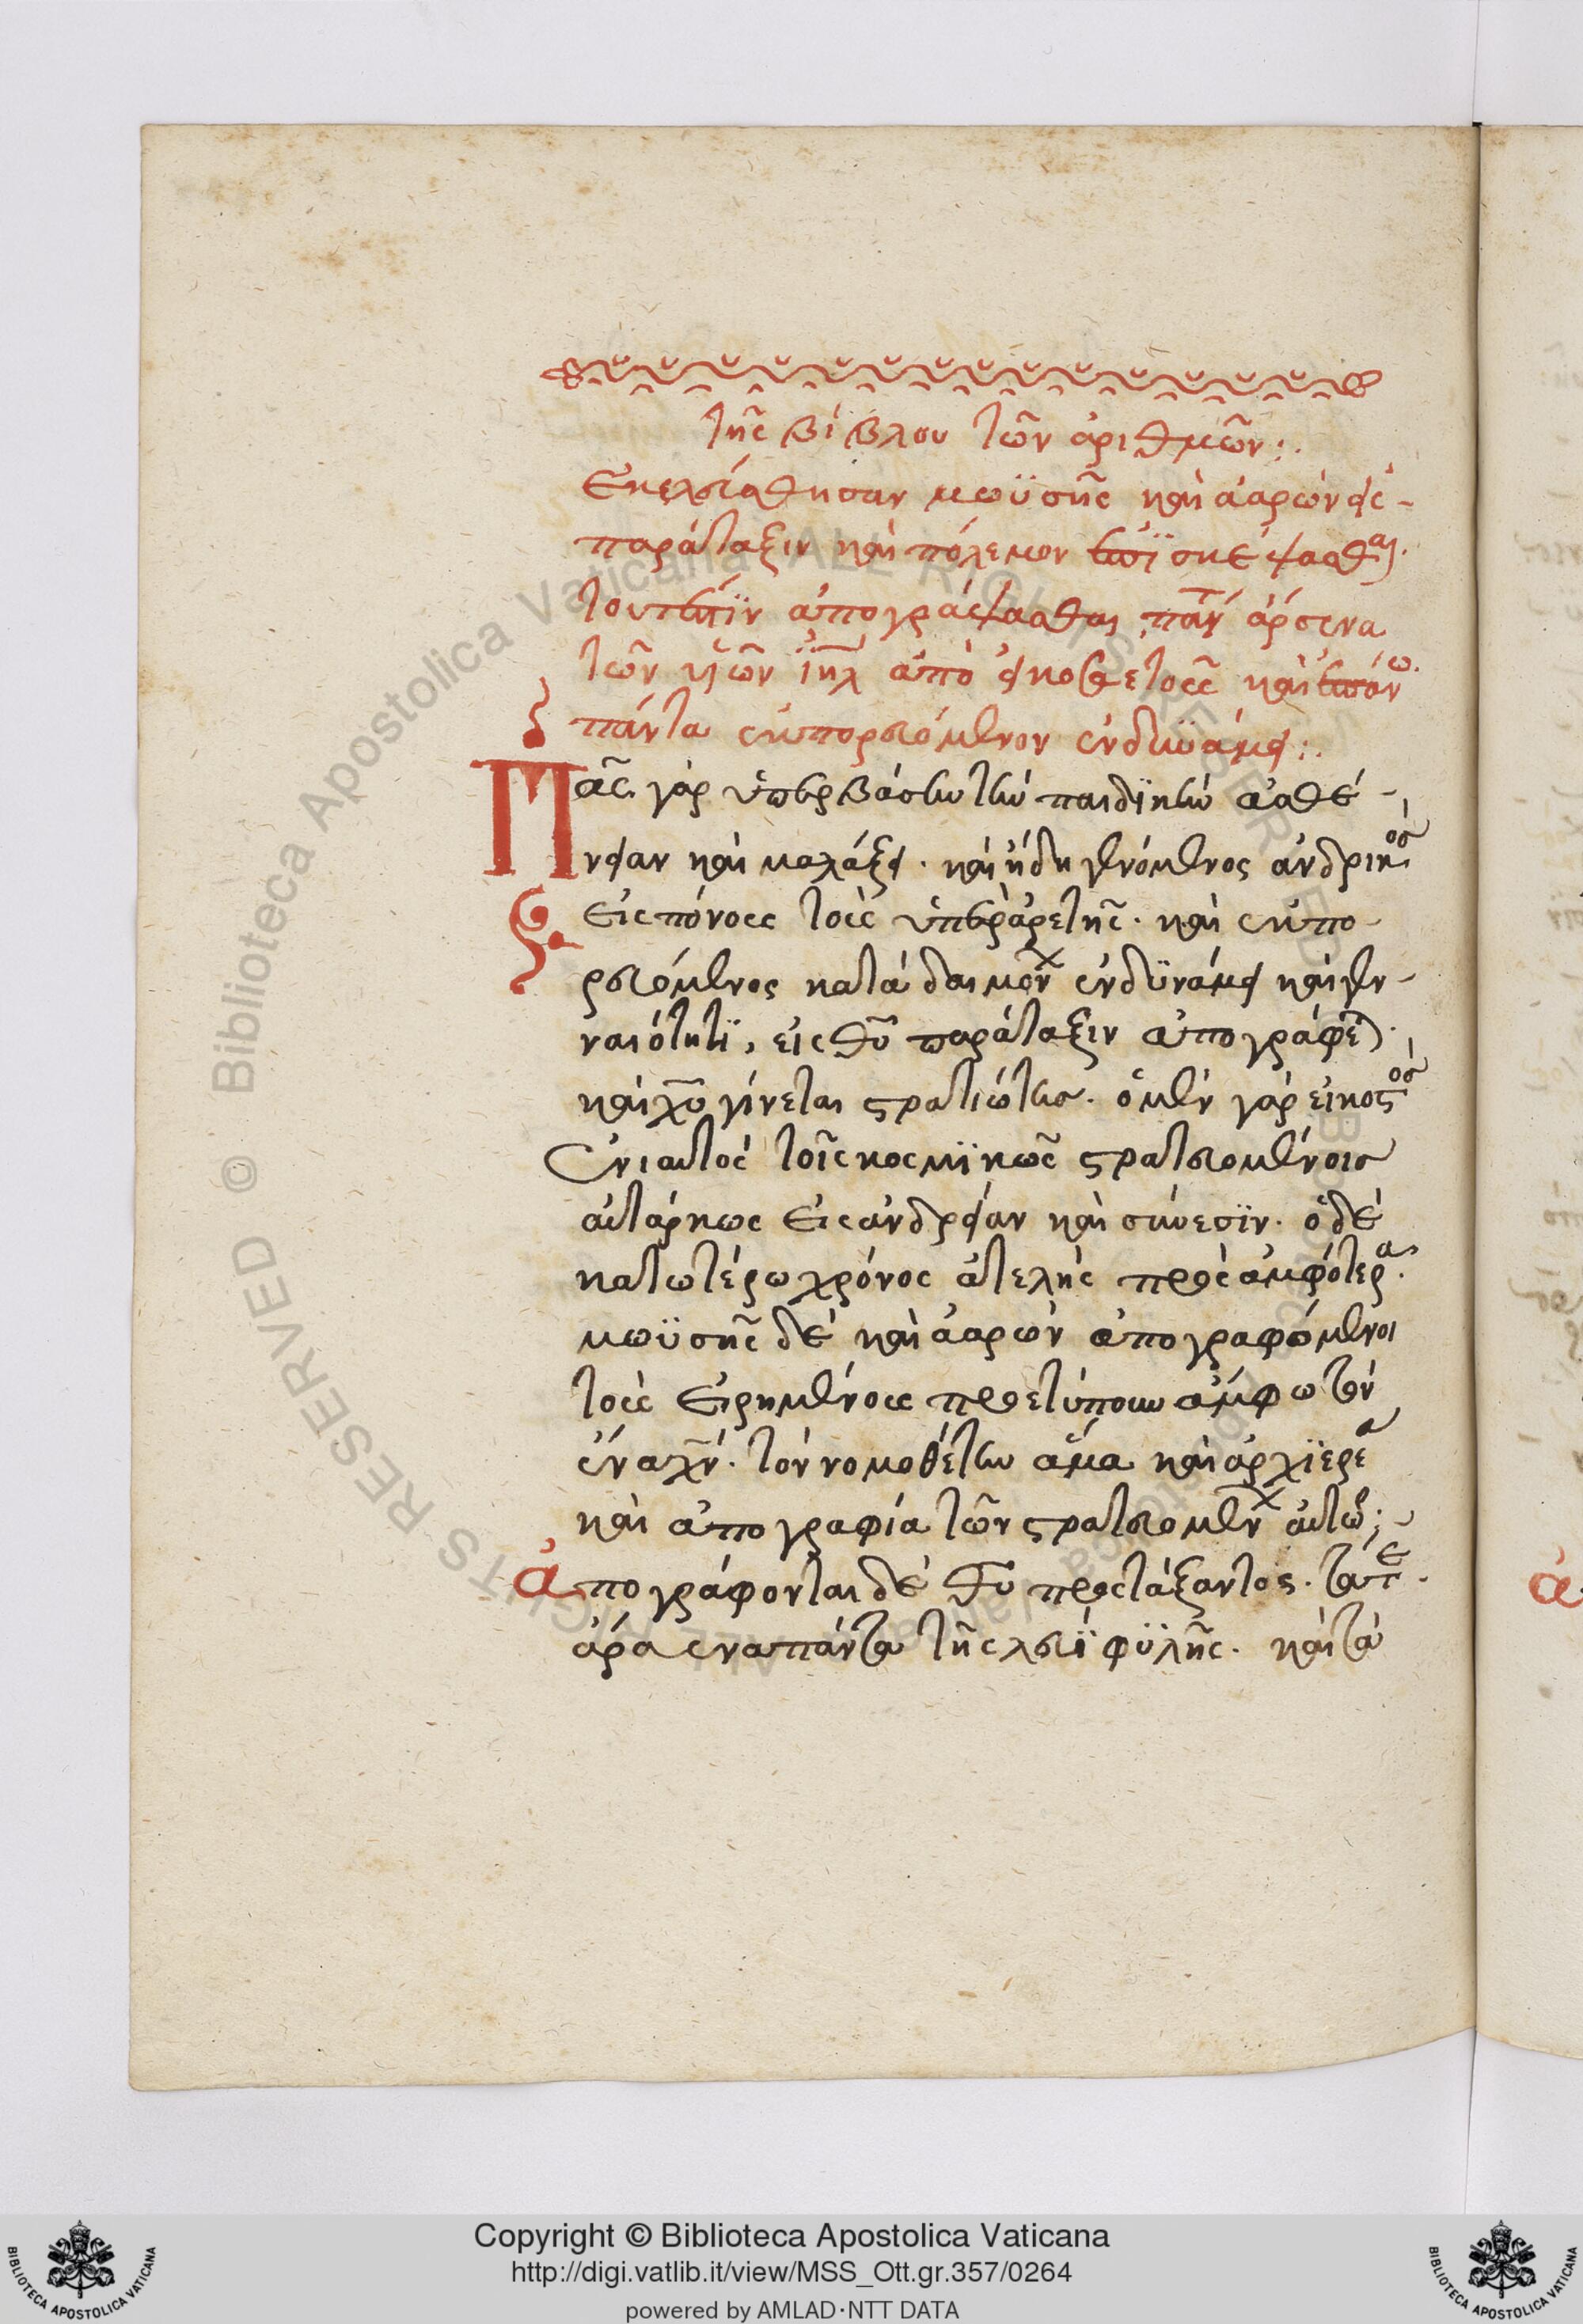 τῆς βίβλου τῶν ἀριθμῶν:.
Ἐκελεύσθησαν μωϋσῆς καὶ ἀαρὼν εἰς
παράταξιν καὶ πόλεμον ἐπισκέψασθαι.
τουτέστιν ἀπογράψασθαι πᾶν ἄρσενα
τῶν υἱῶν ἰηλ ἀπὸ εἰκοσαετοῦς καὶ ἐπάνω.
πάντα ἐκπορευόμενον ἐν δυνάμει:.
Πᾶς γὰρ ὑπερβὰς τὴν παιδικὴν ἀσθέ-
νειαν καὶ μαλάξει. καὶ ἤδη γενόμενος ἀνδρικὸσ
εἰς πόνους τοὺς ὑπὲρ ἀρετῆς. καὶ ἐκπο-
ρευόμενος κατὰ δαιμόνων ἐν δυνάμει καὶ γεν-
ναιότητι, εἰς θυ παράταξιν ἀπογράφεται.
καὶ χυ γίνεται στρατιώτησ. ὁ μὲν γὰρ εἰκοστὸσ
ἐνιαυτὸς τοῖς κοσμικῶς στρατευομένοισ
αὐτάρκως εἰς ἀνδρείαν καὶ σύνεσιν. ὁ δὲ
κατωτέρω χρόνος ἀτελὴς πρὸς ἀμφότερα.
μωϋσῆς δὲ καὶ ἀαρὼν ἀπογραφόμενοι
τοὺς εἰρημένους προετύπουν ἄμφω τὸν
ἕνα χν. τὸν νομοθέτην ἅμα καὶ ἀρχιερέα
καὶ ἀπογραφέα τῶν στρατευομένων αὐτῶ:
ἀπογράφονται δὲ θυ προστάξαντος. τά τε
ἄρσενα πάντα τῆς λευὶ φυλῆς. καὶ τὰ
ἀ
Copyright © Biblioteca Apostolica Vaticana
http://digi.vatlib.it/view/MSS_Ott.gr.357/0264
powered by AMLAD·NTT DATA
BIBLIOTECA APOSTOLICA VATICANA
BIBLIOTECA APOSTOLICA VATICANA